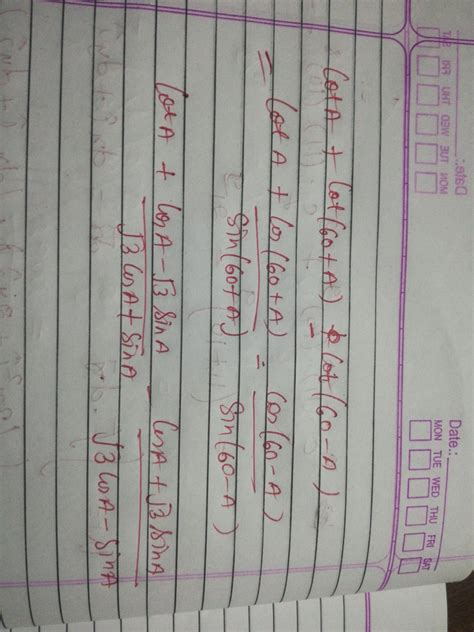 Date:
MON TUE WED THU FRI SAT
cot A + cot(60+A) - cot(60-A)
= cot A + cos(60+A) - cos(60-A)
sin(60+A) sin(60-A)
cot A + cosA - √3 sinA - cosA + √3 sinA
√3 cosA + sinA √3 cosA - sinA
Date:
MON TUE WED THU FRI SAT